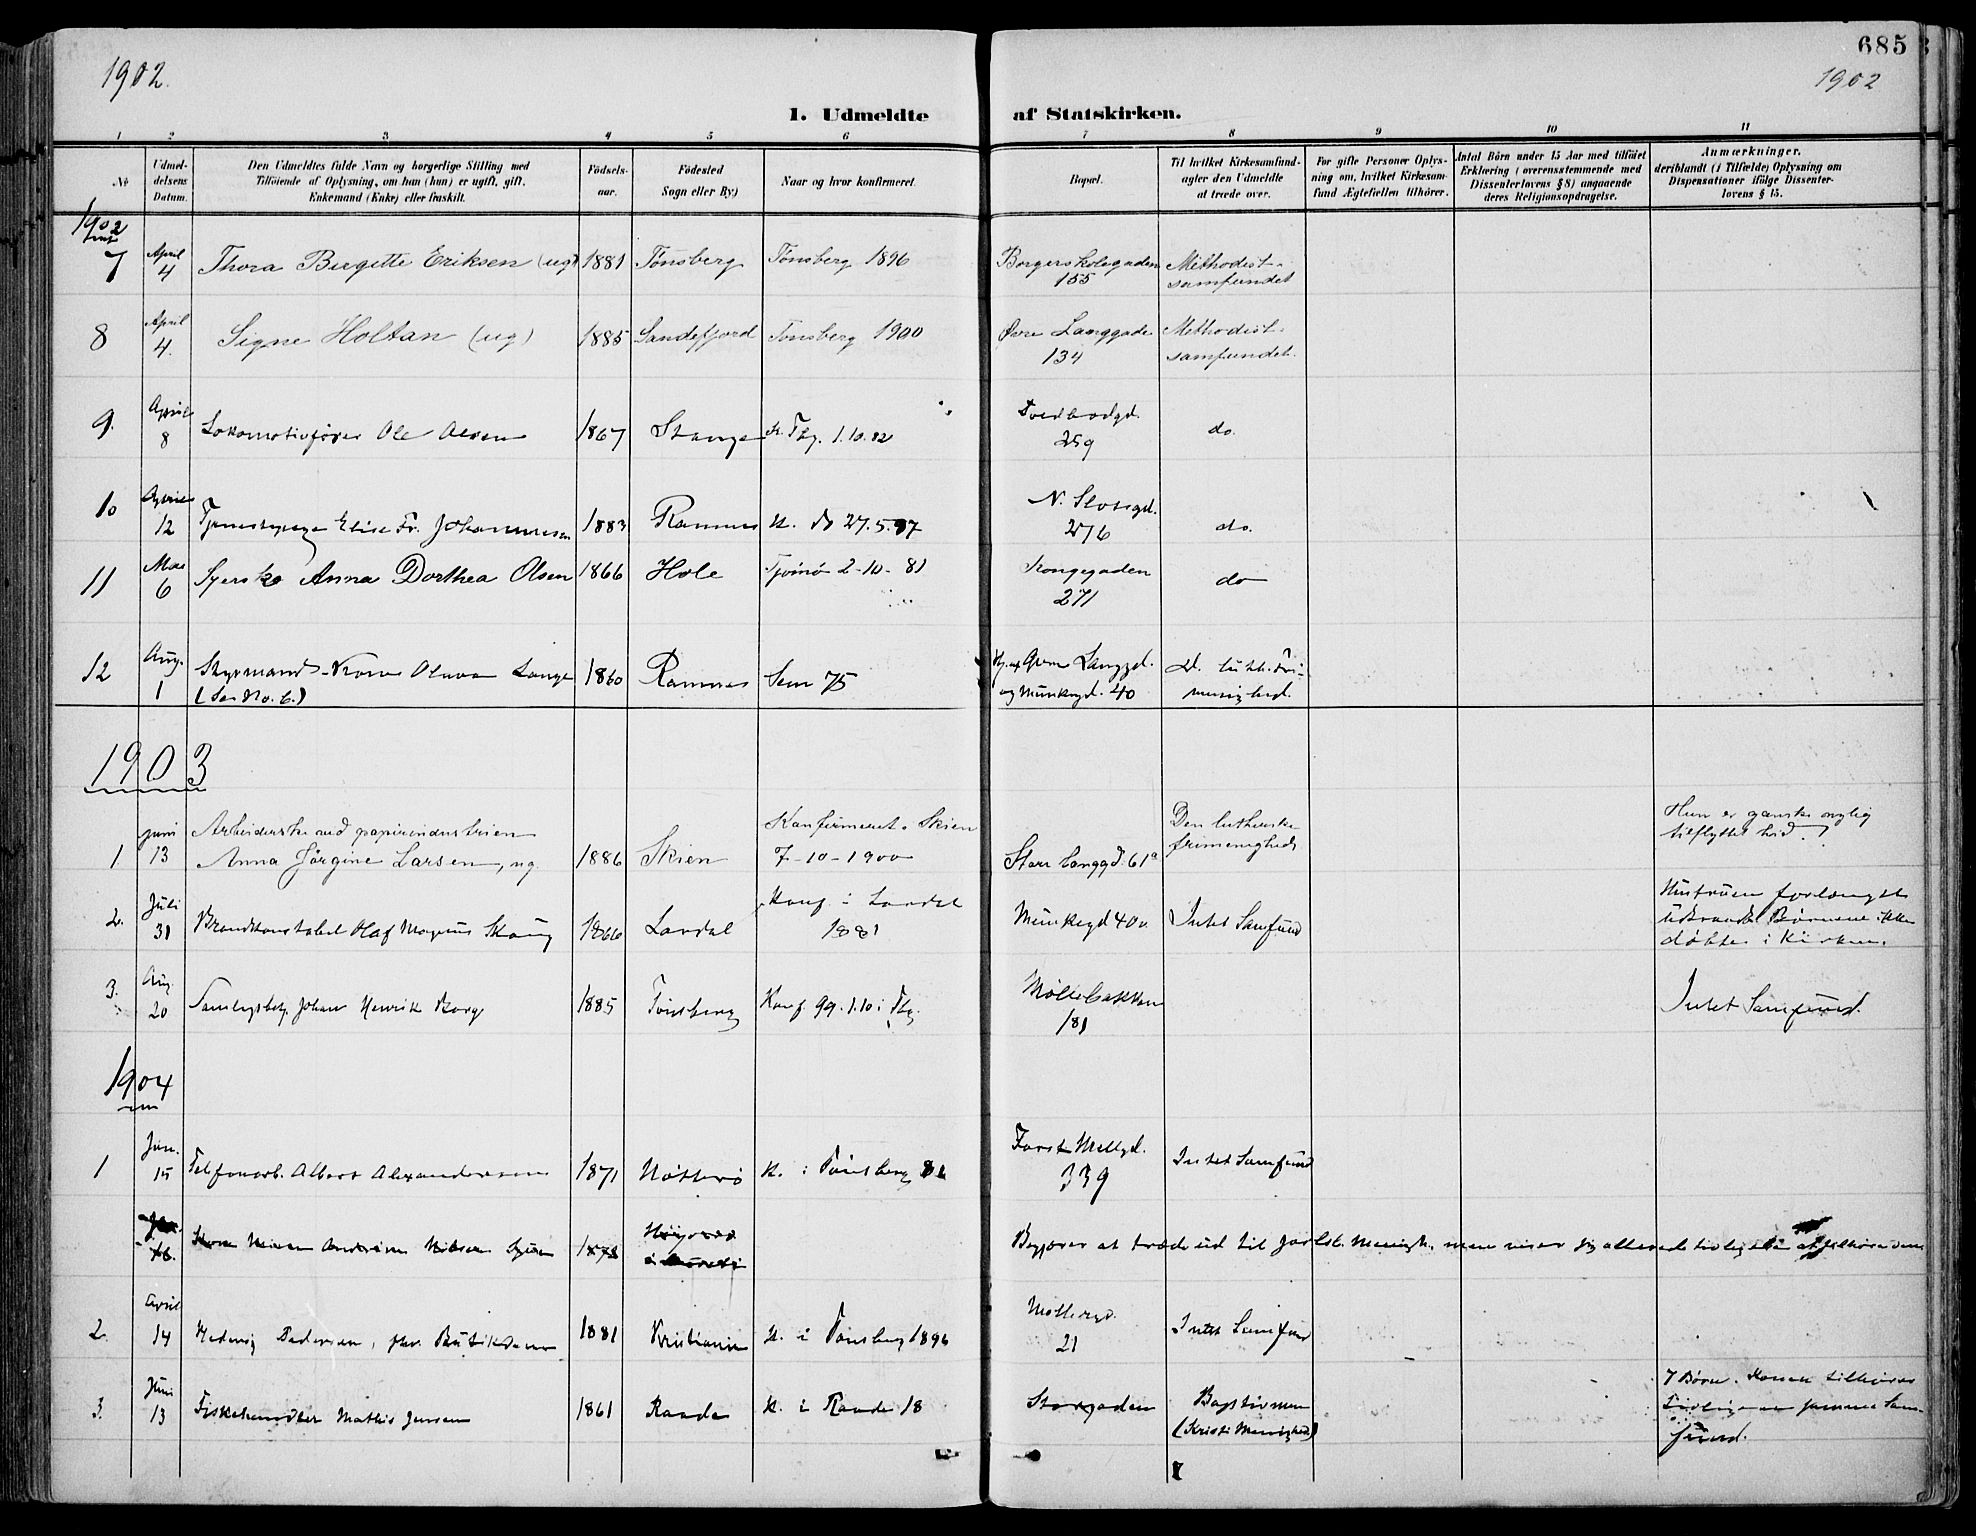 1902.
685
1902
1. Udmeldte af Statskirken.
1 2 3 4 5 6 7 8 9 10 11
No
Udmeldelsens Datum.
Den Udmeldtes fulde Navn og borgerlige Stilling med
Tilføiende af Oplysning, om han (hun) er ugift, gift,
Enkemand (Enke) eller fraskilt.
Fødselsaar.
Fødested
Sogn eller By)
Naar og hvor konfirmeret.
Bopæl.
Til hvilket Kirkesamfund
agter den Udmeldte
at træde over.
For gifte Personer Oplysning
om, hvilket Kirkesamfund
Ægtefællen tilhører.
Antal Børn under 15 Aar med tilføiet
Erklæring (overensstemmende med
Dissenterlovens § 8) angaaende
deres Religionsopdragelse.
Anmærkninger,
deriblandt (i Tilfælde) Oplysning om
Dispensationer ifølge Dissenterlovens § 15.
1902
7 April 4 Thora Birgitte Eriksen (ug) 1881 Tønsberg Tønsberg 1896 Borgerskolegaden 155 Methodistsamfundet
8 April 4. Signe Holtan (ug) 1885 Sandefjord Tønsberg 1900 Øvre Langgade 134 Methodistsamfundet.
9. April 8 Lokomotivfører Ole Olsen 1867 Stange K. Tbg. 1.10.82 259 do.
10 April 12 Tjenestepige Elise Fr. Johannesen 1883 Ramnes K. do 27.5.97 N. Slotsgd. 276 do.
11 Mai 6 Syerske Anna Dorthea Olsen 1866 Hole Tjømø 2-10-81 Kongegaden 271 do
12 Aug. 1 Styrmands-Kone Lange 1860 Ramnes Sem 75 Langgd.
(Se No. 6.) og Munkegd. 40 Ev. luth. Frimenighed.
1903
1 juni 13 Arbeiderske ved papirindustrien
Anna Jørgine Larsen, ug. 1886 Skien Konfirmeret i Skien 7-10-1900 Store Langgd. 61a Den lutherske frimenigheds Hun er ganske nylig tilflyttet hid.
2. Juli 31 Brandkonstabel Olaf Magnus Skaug 1866 Lardal Konf i Lardal 1881 Munkegd 40 Intet Samfund Hustruen forlængst
udtraadt Børnene ikke
døbte i Kirken.
3. Aug. 20 Johan Henrik Borg 1885 Tønsberg Konf. 99. 1.10 i Tbg. Møllebakken 181 Intet Samfund.
1904
1 Jan. 15 Telefonarb. Albert Alexandersen 1871 Nøtterø K. i Tønsberg Møllegd. 339 Intet Samfund
Jan. 16. Nilsen 1878 Begjærer at træde ud til Jarlsb. Menigh. men viser sig allerede tidligere at tilhøre den
2. April 14 Hedvig Pedersen, Butikdame 1881 Kristiania K. i Tønsberg 1896 Møllergd. 21 Intet Samfund
3. Juni 13 Fiskehandler Mathis Jensen 1861 Raade K. i Raade 18 Storgaden (Kristi Menighed) 7 Børn. Konen tilhører
samme Samfund.